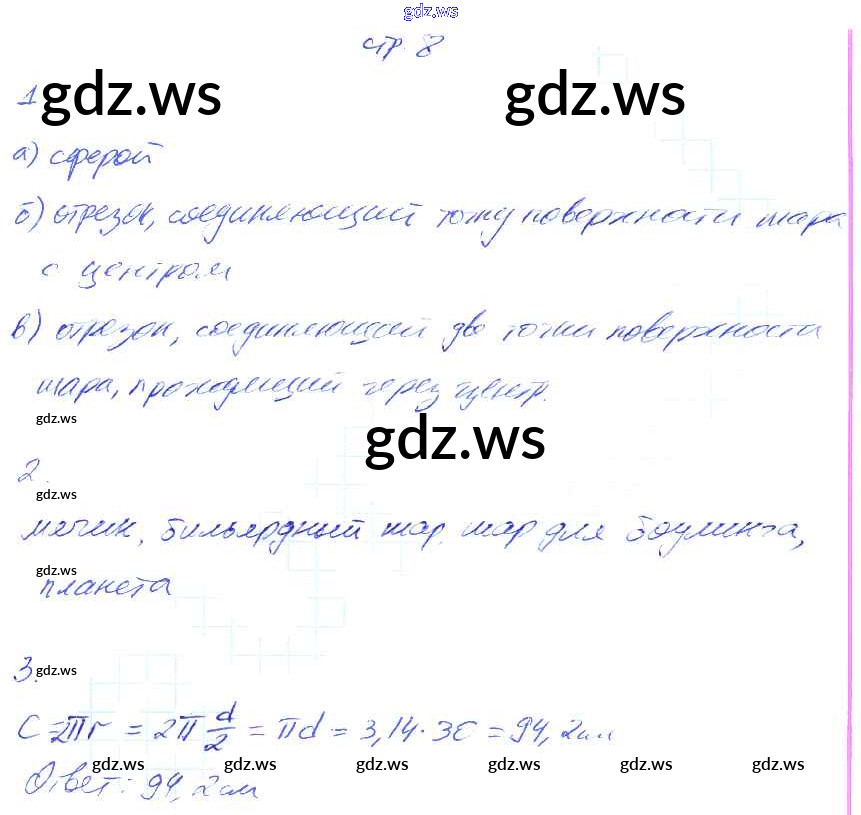 gdz.ws
стр. 8
1 gdz.ws gdz.ws
а) сферой
б) отрезок, соединяющий точку поверхности шара
с центром
в) отрезок, соединяющий две точки поверхности
шара, проходящий через центр.
gdz.ws gdz.ws
2.
gdz.ws
мячик, бильярдный шар, шар для боулинга,
gdz.ws
планета
3. gdz.ws
C = 2πr = 2π d/2 = πd = 3,14 · 30 = 94,2 см
gdz.ws gdz.ws gdz.ws gdz.ws gdz.ws gdz.ws
Ответ: 94,2 см